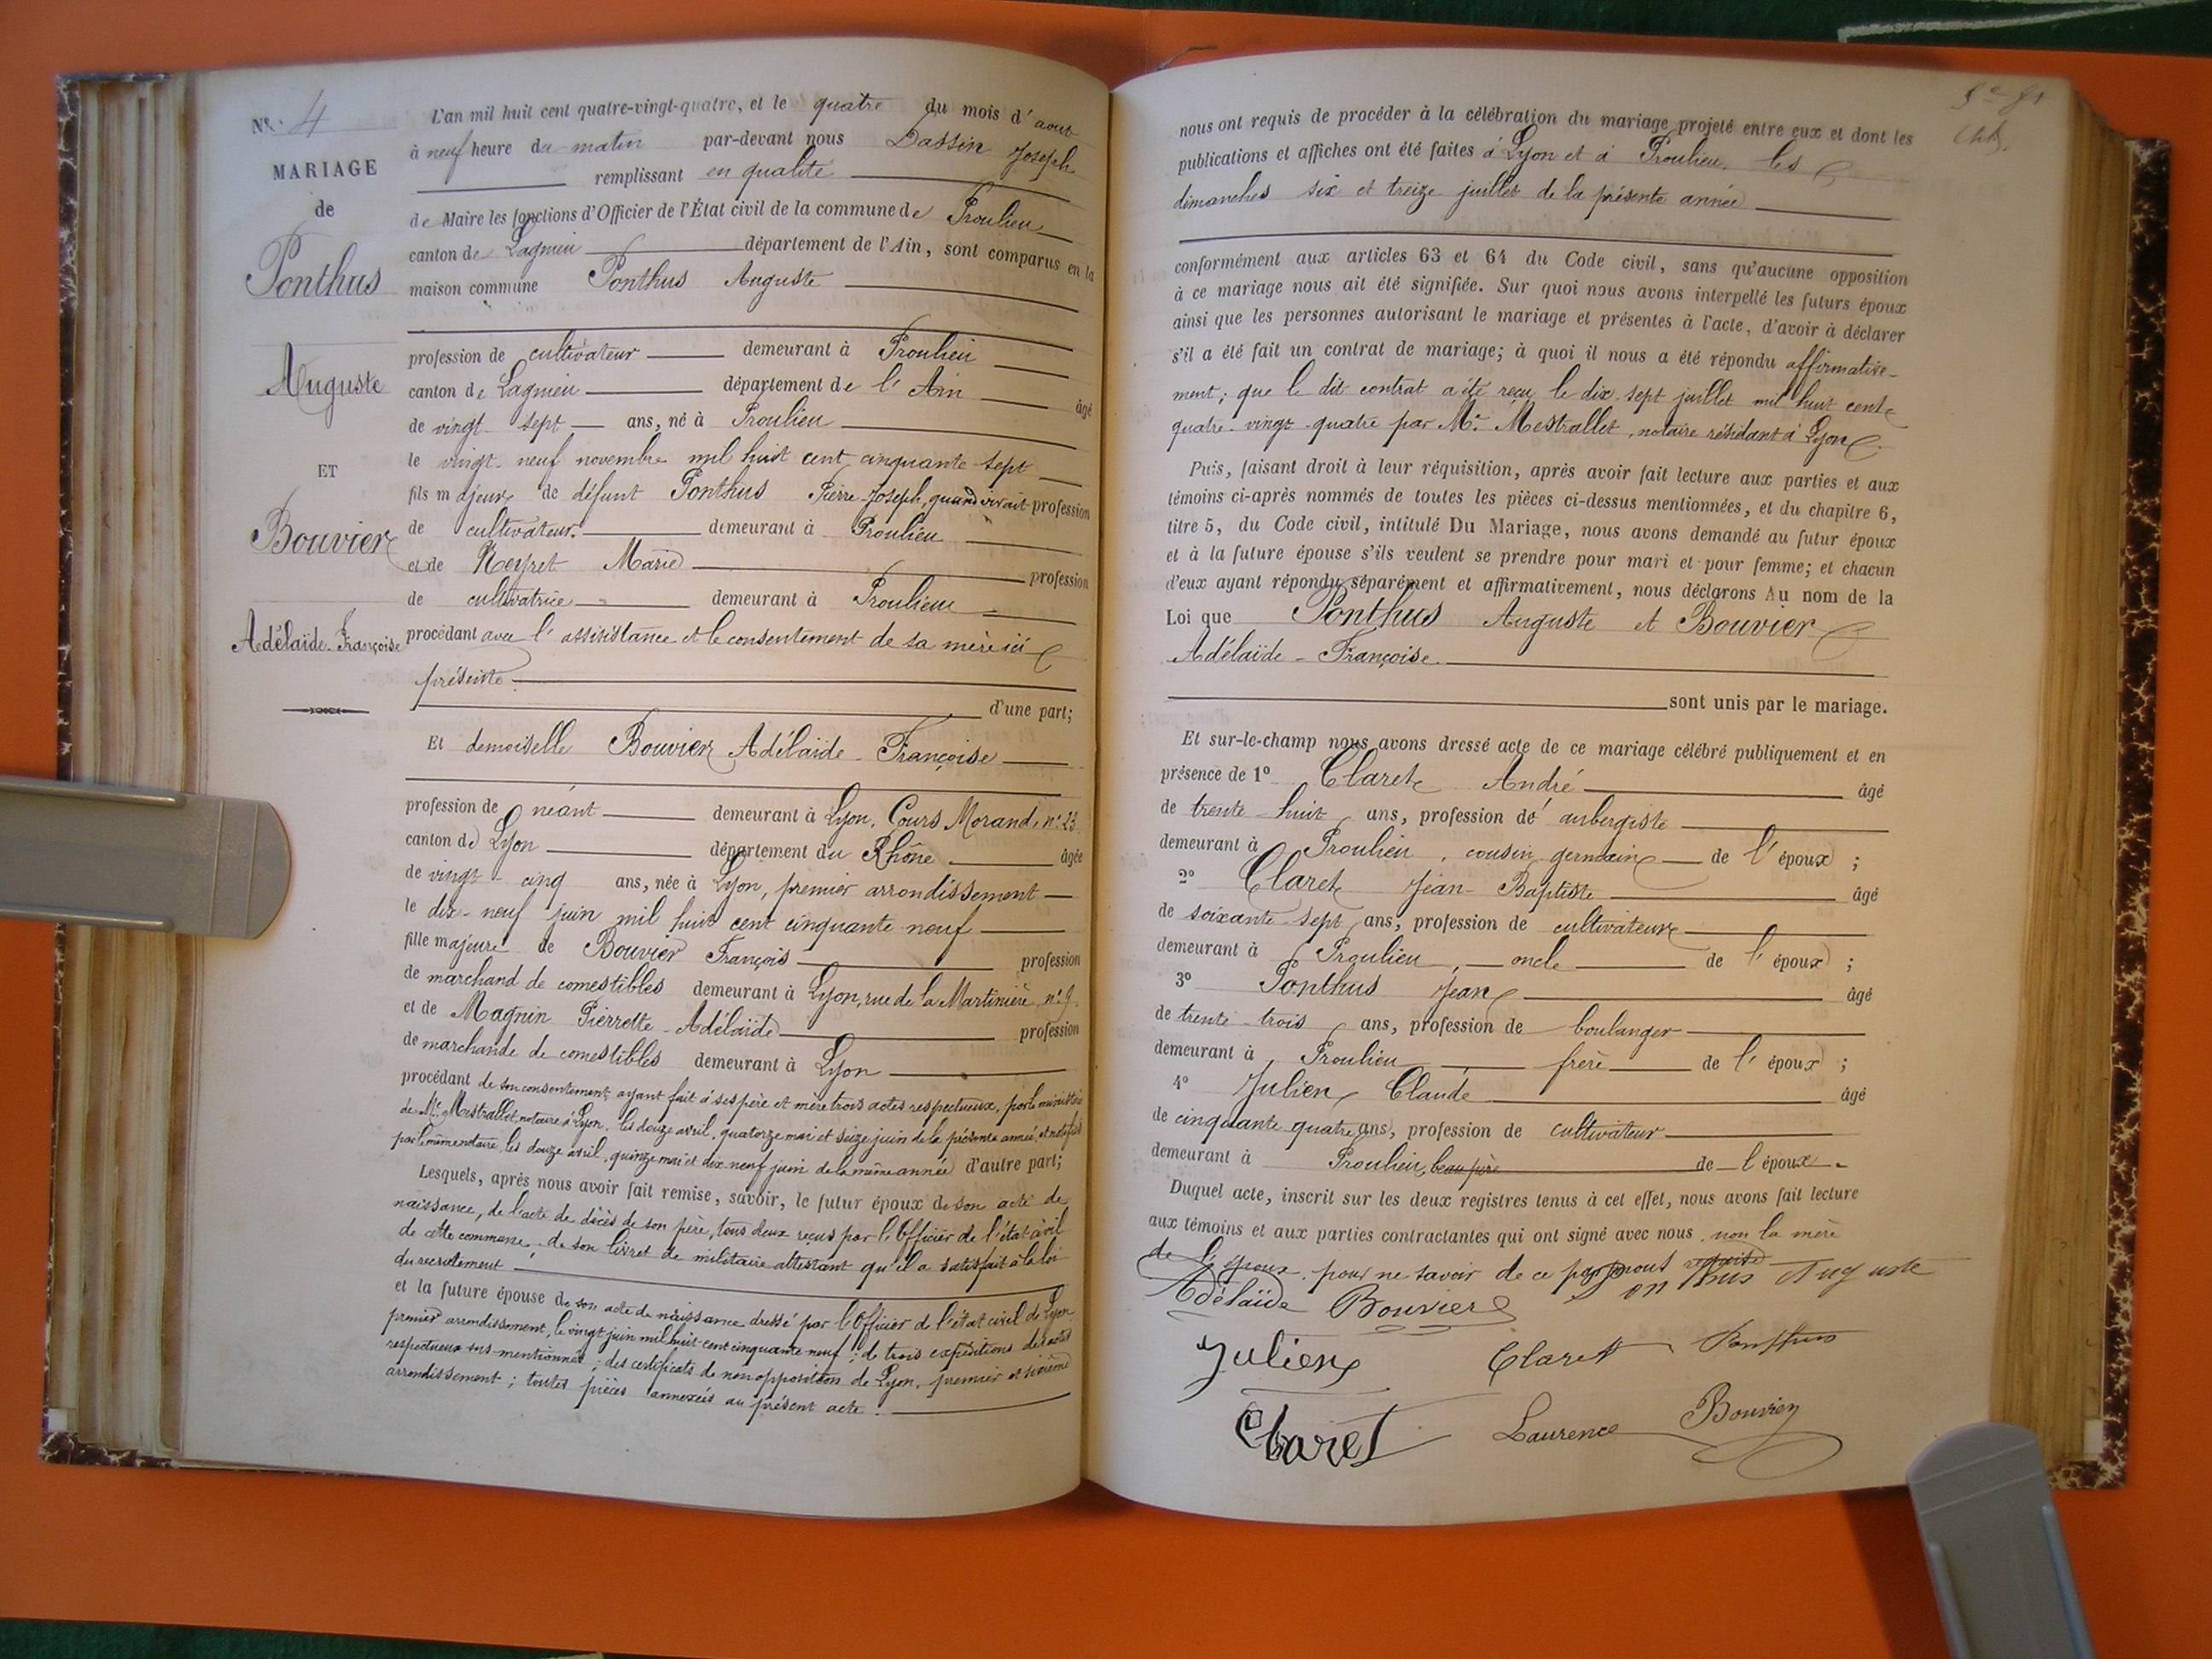 N° 4
MARIAGE
de
Ponthus
Auguste
ET
Bouvier
Adélaïde-Françoise
L'an mil huit cent quatre-vingt-quatre, et le quatre du mois d'aout
à neuf heure du matin par-devant nous Dassin Joseph
remplissant en qualité
de Maire les fonctions d'Officier de l'État civil de la commune de Proulieu
canton de Lagnieu département de l'Ain, sont comparus en la
maison commune Ponthus Auguste
profession de cultivateur demeurant à Proulieu
canton de Lagnieu département de l'Ain âgé
de vingt-sept ans, né à Proulieu
le vingt-neuf novembre mil huit cent cinquante sept
fils majeur de défunt Ponthus Pierre-Joseph, quand vivait profession
de cultivateur demeurant à Proulieu
et de Neyret Marie profession
de cultivatrice demeurant à Proulieu
procédant avec l'assisistance et le consentement de sa mère ici
présente
d'une part;
Et demoiselle Bouvier Adélaïde-Françoise
profession de néant demeurant à Lyon, Cours Morand, n° 23
canton de Lyon département du Rhône âgée
de vingt-cinq ans, née à Lyon, premier arrondissement
le dix-neuf juin mil huit cent cinquante neuf
fille majeure de Bouvier François profession
de marchand de comestibles demeurant à Lyon, rue de la Martinière, n° 9
et de Magnin Pierrette-Adélaïde profession
de marchande de comestibles demeurant à Lyon
procédant de son consentement, ayant fait à ses père et mère trois actes respectueux, par le ministère
de Me Mestrallet, notaire à Lyon, les douze avril, quatorze mai et seize juin de la présente année, et notifiés
par le même notaire, les douze avril, quinze mai et dix neuf juin de la même année d'autre part;
Lesquels, après nous avoir fait remise, savoir, le futur époux de son acte de
naissance, de l'acte de décès de son père, tous deux reçus par l'Officier de l'état civil
de cette commune; de son livret de militaire attestant qu'il a satisfait à la loi
du recrutement
et la future épouse de son acte de naissance dressé par l'Officier de l'état civil de Lyon
premier arrondissement, le vingt juin mil huit cent cinquante neuf; de trois expéditions des actes
respectueux sus-mentionnés; des certificats de non opposition de Lyon, premier et sixième
arrondissement; toutes pièces annexées au présent acte.
nous ont requis de procéder à la célébration du mariage projeté entre eux et dont les
publications et affiches ont été faites à Lyon et à Proulieu, les
dimanches six et treize juillet de la présente année
conformément aux articles 63 et 64 du Code civil, sans qu'aucune opposition
à ce mariage nous ait été signifiée. Sur quoi nous avons interpellé les futurs époux
ainsi que les personnes autorisant le mariage et présentes à l'acte, d'avoir à déclarer
s'il a été fait un contrat de mariage; à quoi il nous a été répondu affirmative-
ment; que le dit contrat a été reçu le dix-sept juillet mil huit cent
quatre-vingt-quatre par Me Mestrallet, notaire résidant à Lyon
Puis, faisant droit à leur réquisition, après avoir fait lecture aux parties et aux
témoins ci-après nommés de toutes les pièces ci-dessus mentionnées, et du chapitre 6,
titre 5, du Code civil, intitulé Du Mariage, nous avons demandé au futur époux
et à la future épouse s'ils veulent se prendre pour mari et pour femme; et chacun
d'eux ayant répondu séparément et affirmativement, nous déclarons Au nom de la
Loi que Ponthus Auguste et Bouvier
Adélaïde-Françoise
sont unis par le mariage.
Et sur-le-champ nous avons dressé acte de ce mariage célébré publiquement et en
présence de 1° Claret André âgé
de trente-huit ans, profession de aubergiste
demeurant à Proulieu, cousin germain de l'époux;
2° Claret Jean-Baptiste âgé
de soixante-sept ans, profession de cultivateur
demeurant à Proulieu, oncle de l'époux;
3° Ponthus Jean âgé
de trente-trois ans, profession de boulanger
demeurant à Proulieu frère de l'époux;
4° Julien Claude âgé
de cinquante quatre ans, profession de cultivateur
demeurant à Proulieu, beau père de l'époux.
Duquel acte, inscrit sur les deux registres tenus à cet effet, nous avons fait lecture
aux témoins et aux parties contractantes qui ont signé avec nous, non la mère
de l'époux, pour ne savoir de ce par nous requise
Ponthus Auguste
Adélaïde Bouvier
Julien Claret Ponthus
Claret Laurence Bouvier